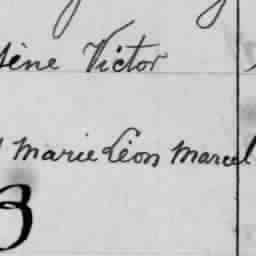 Victor
Marie Léon Marcel